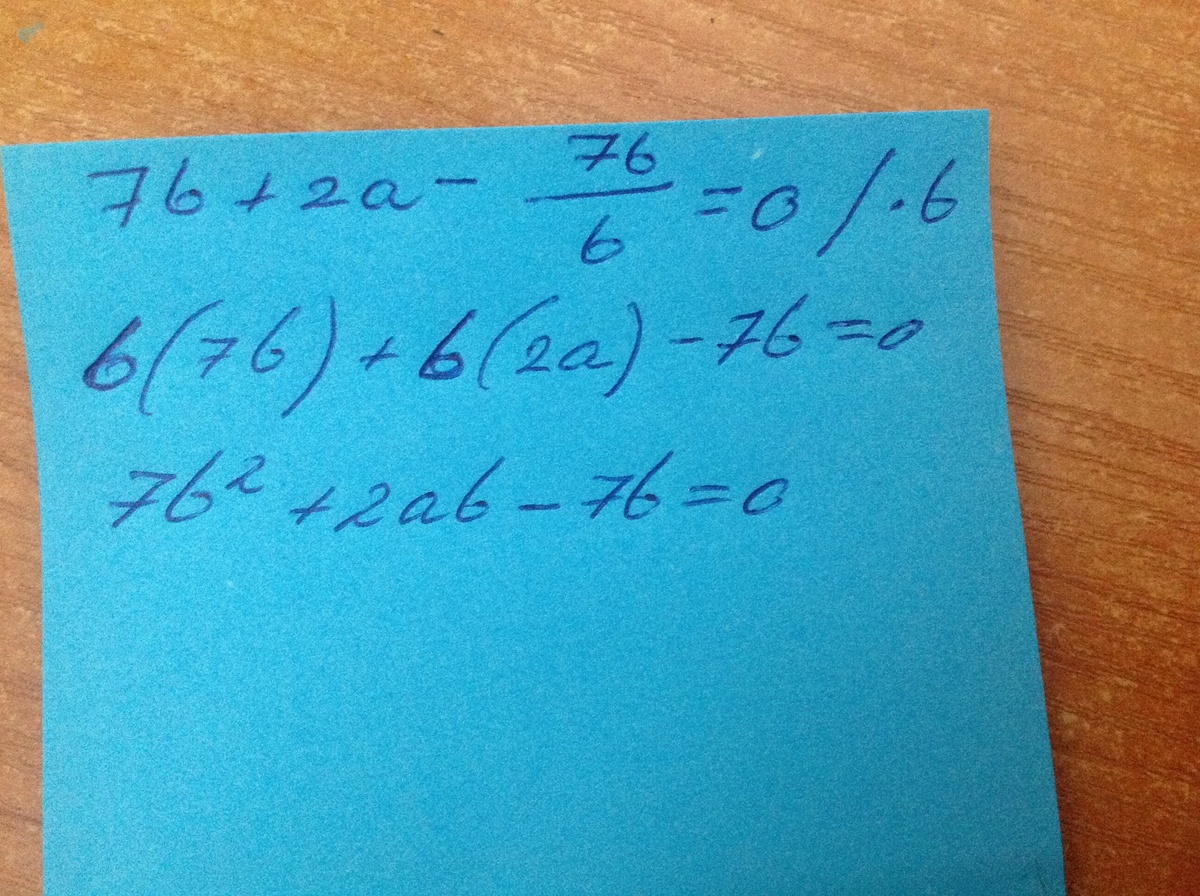 7b + 2a - 7b/b = 0 / · b
b(7b) + b(2a) - 7b = 0
7b² + 2ab - 7b = 0